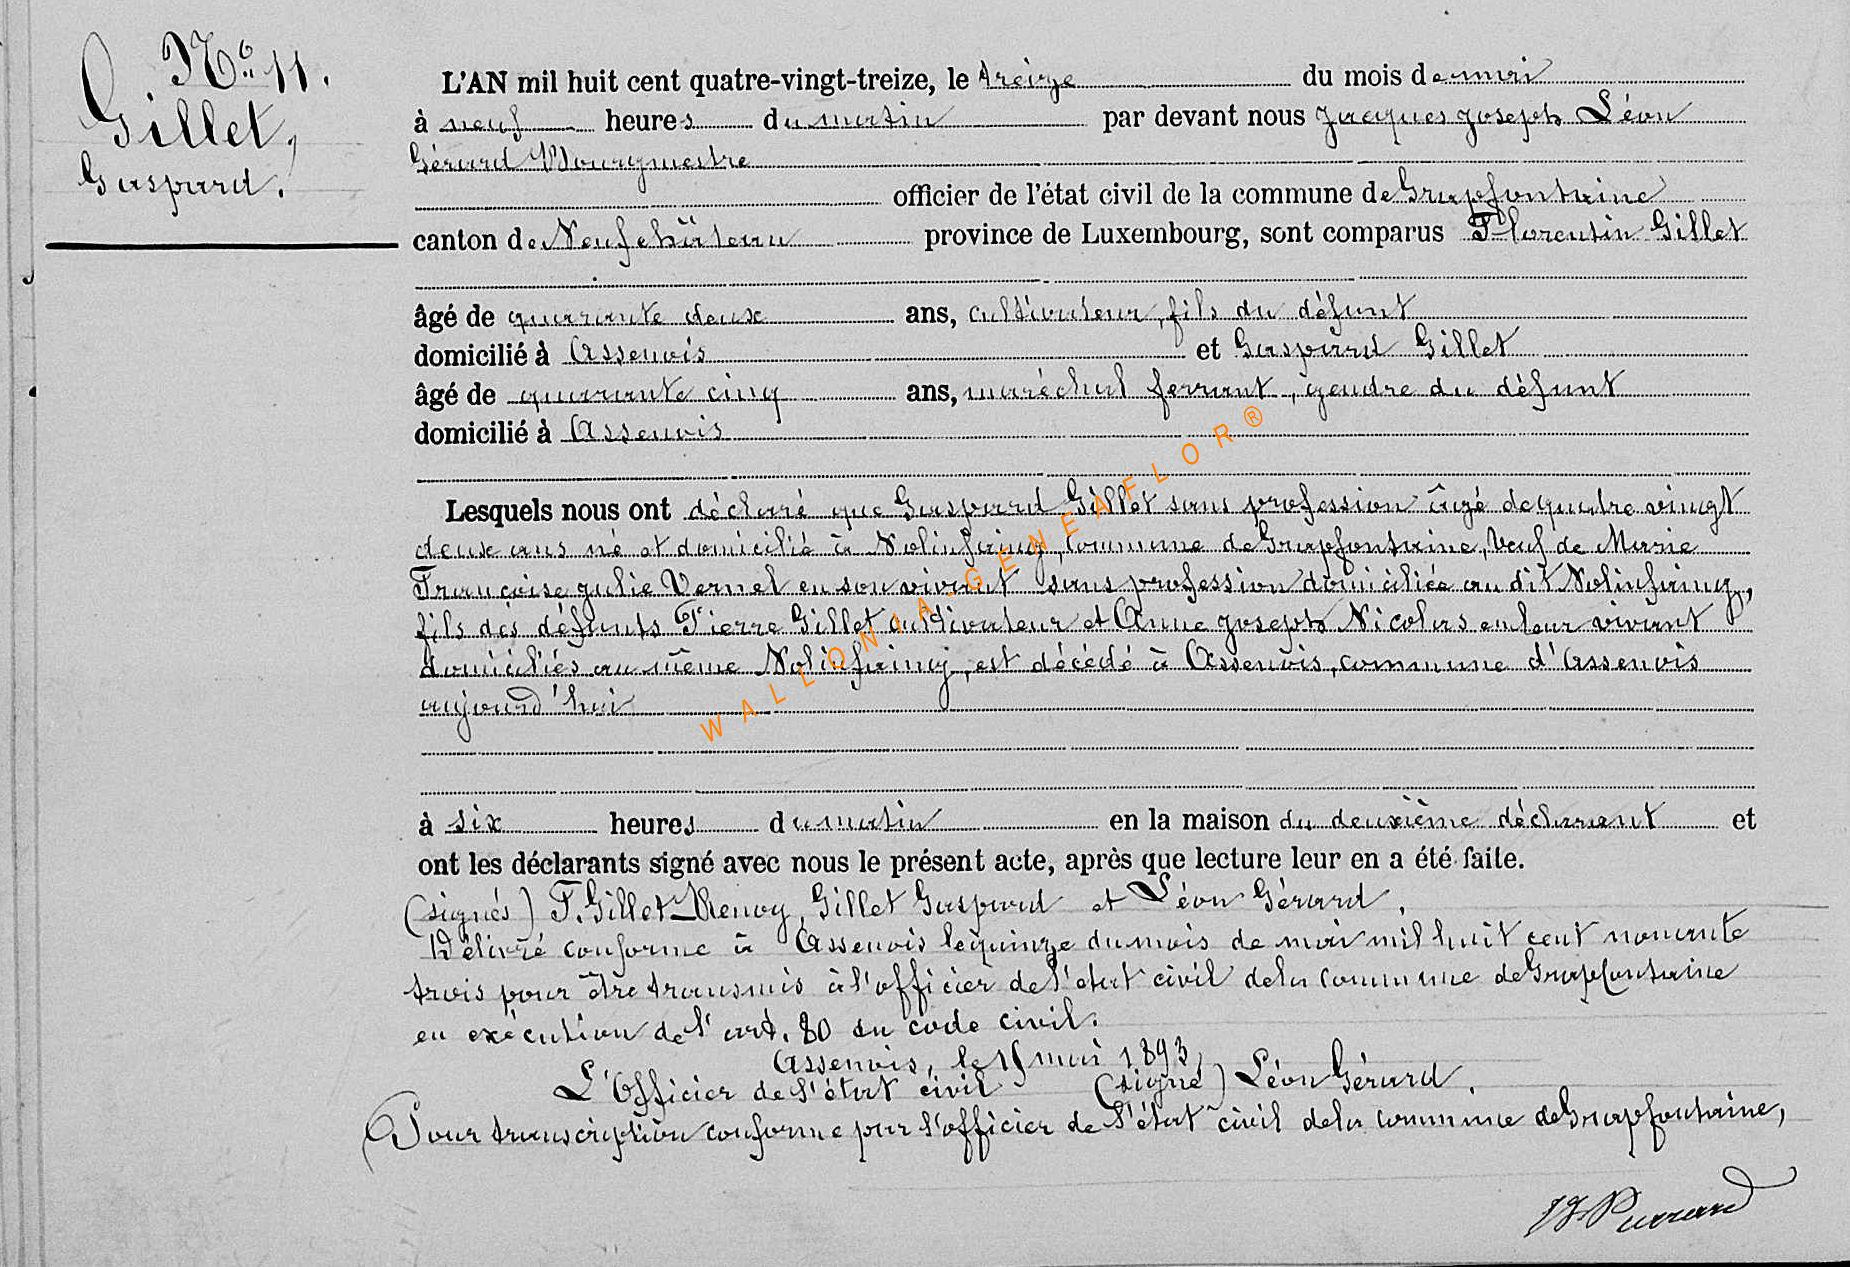 No. 11.
Gillet,
Gaspard.
L'AN mil huit cent quatre-vingt-treize, le treize du mois de mai
à neuf heures du matin par devant nous Jacques Joseph Léon
Gérard Bourgmestre
officier de l'état civil de la commune de Grapfontaine
canton de Neufchâteau province de Luxembourg, sont comparus Florentin Gillet
âgé de quarante deux ans, cultivateur, fils du défunt
domicilié à Assenois et Gaspard Gillet
âgé de quarante cinq ans, maréchal ferrant, gendre du défunt
domicilié à Assenois
Lesquels nous ont déclaré que Gaspard Gillet sans profession âgé de quatre vingt
deux ans né et domicilié à Nolinfaing, commune de Grapfontaine, Veuf de Marie
Françoise Julie Vernel en son vivant sans profession domiciliée au dit Nolinfaing,
fils des défunts Pierre Gillet cultivateur et Anne Joseph Nicolas en leur vivant
domiciliés au même Nolinfaing, est décédé à Assenois, commune d'Assenois
aujourd'hui
à six heures du matin en la maison du deuxième déclarant et
ont les déclarants signé avec nous le présent acte, après que lecture leur en a été faite.
(signés) F. Gillet-Renoy, Gillet Gaspard et Léon Gérard.
Délivré conforme à Assenois le quinze du mois de mai mil huit cent nonante
trois pour être transmis à l'officier de l'état civil de la commune de Grapfontaine
en exécution de l'art. 80 du code civil.
Assenois, le 15 mai 1893,
L'Officier de l'état civil (signé) Léon Gérard.
Pour transcription conforme par l'officier de l'état civil de la commune de Grapfontaine,
WALLONIA-GENEAFLOR®